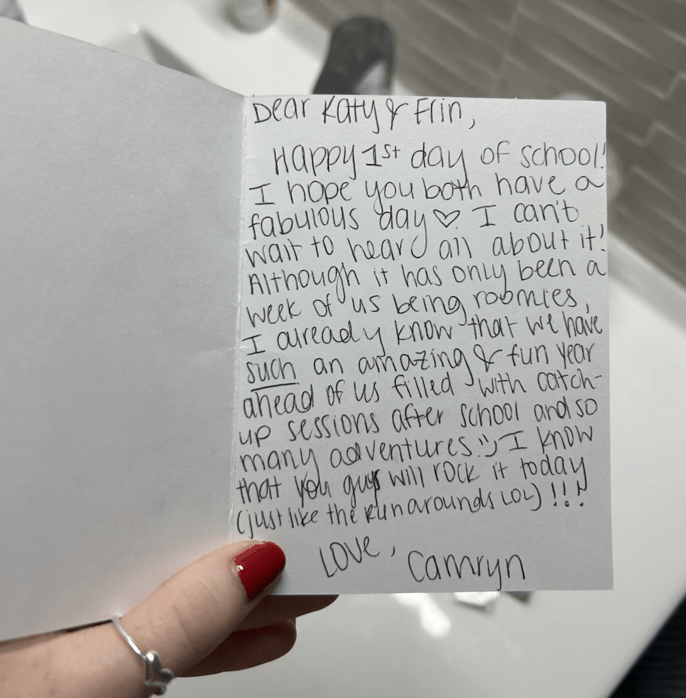 Dear Katy & Erin,
Happy 1st day of school!
I hope you both have a
fabulous day♡. I can't
wait to hear all about it!
Although it has only been a
week of us being roomies,
I already know that we have
such an amazing & fun year
ahead of us filled with catch-
up sessions after school and so
many adventures :) I know
that you guys will rock it today
(just like the Runarounds LOL) !!!
Love,
Camryn